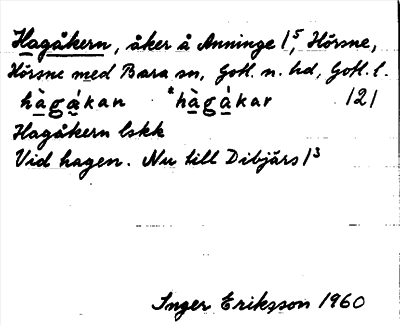 Hagåkern, åker å Anninge 1⁵, Hörsne,
Hörsne med Bara sn, Gotl. n. hd, Gotl. l.
hà̱gá̱kan ˣhà̱gá̱kar 121
Hagåkern lskk
Vid hagen. Nu till Dibjärs 1³
Inger Eriksson 1960